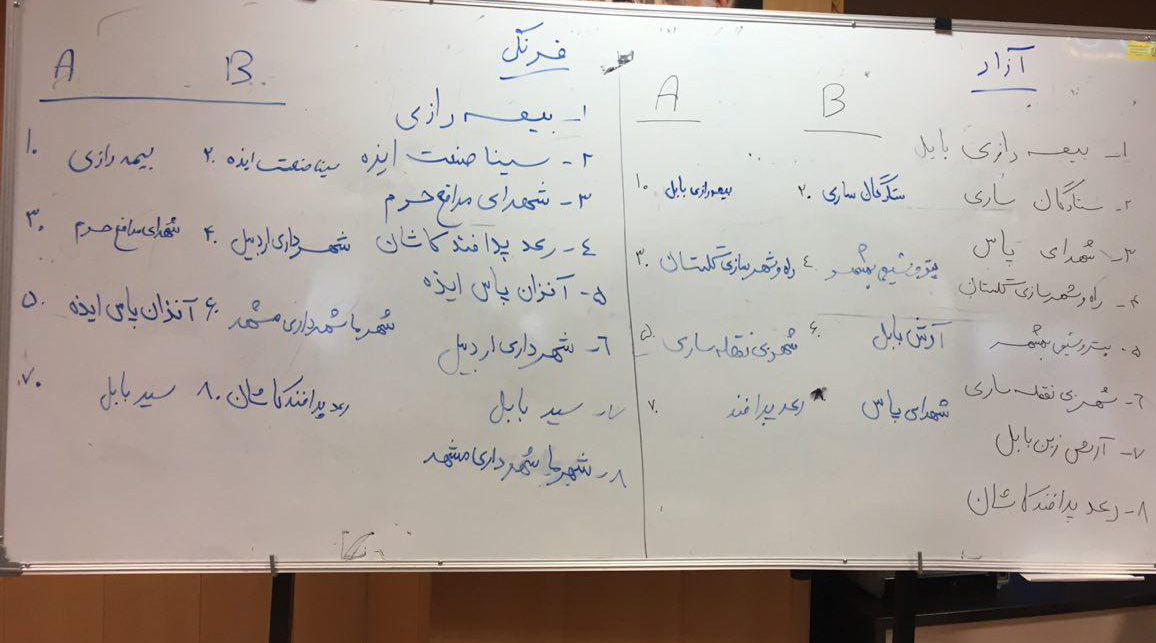 آزاد
A B
۱- بیمه رازی بابل
۲- ستارگان ساری
۳- شهدای پاس
۴- راه و شهرسازی گلستان
۵- پتروشیمی بهشهر
۶- شهربی نقلیه ساری
۷- آرتش زرین بابل
۸- رعد پدافند کاشان
۱. بیمه رازی بابل ۲. ستارگان ساری
۳. راه و شهرسازی گلستان ۴. پتروشیمی بهشهر
۵. شهربی نقلیه ساری ۶. آرتش بابل
۷. رعد پدافند ۸ شهدای پاس
فرنگی
A B
۱- بیمه رازی
۲- سینا صنعت ایذه
۳- شهدای مدافع حرم
۴- رعد پدافند کاشان
۵- آنزان پاس ایذه
۶- شهرداری اردبیل
۷- سید بابل
۸- شهر ما شهرداری مشهد
۱. بیمه رازی ۲. سینا صنعت ایذه
۳. شهدای مدافع حرم ۴. شهرداری اردبیل
۵. آنزان پاس ایذه ۶. شهر ما شهرداری مشهد
۷. سید بابل ۸. رعد پدافند کاشان